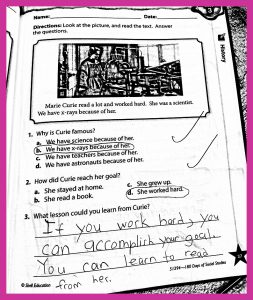 Name: Date:
Directions: Look at the picture, and read the text. Answer
the questions.
History
Marie Curie read a lot and worked hard. She was a scientist.
We have x-rays because of her.
1. Why is Curie famous?
a. We have science because of her.
b. We have x-rays because of her.
c. We have teachers because of her.
d. We have astronauts because of her.
2. How did Curie reach her goal?
a. She stayed at home. c. She grew up.
b. She read a book. d. She worked hard.
3. What lesson could you learn from Curie?
If you work hard, you
can accomplish your goal.
You can learn to read
from her.
© Shell Education 51394—180 Days of Social Studies